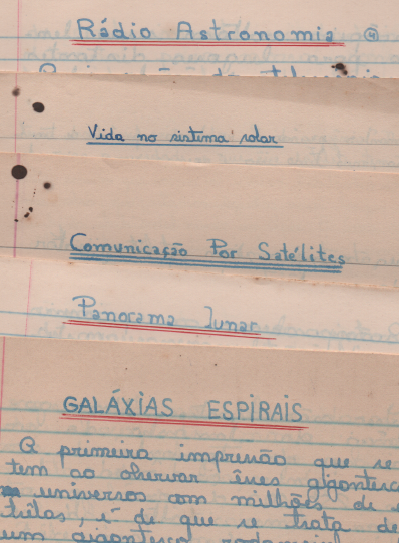 Rádio Astronomia 4
Vida no sistema solar
Comunicação Por Satélites
Panorama Lunar
GALÁXIAS ESPIRAIS
A primeira impressão que se
tem ao observar êsses gigantesc
universos com milhões de e
trêlas, é de que se trata de
um gigantesco